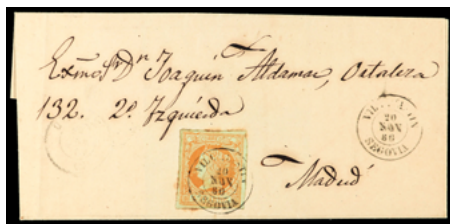 Exmo Sr Dn Joaquin Aldamar, Ortaleza
132. 2o. Izquierda
20
NOV
60
SEGOVIA
20
NOV
60
SEGOVIA
Madrid